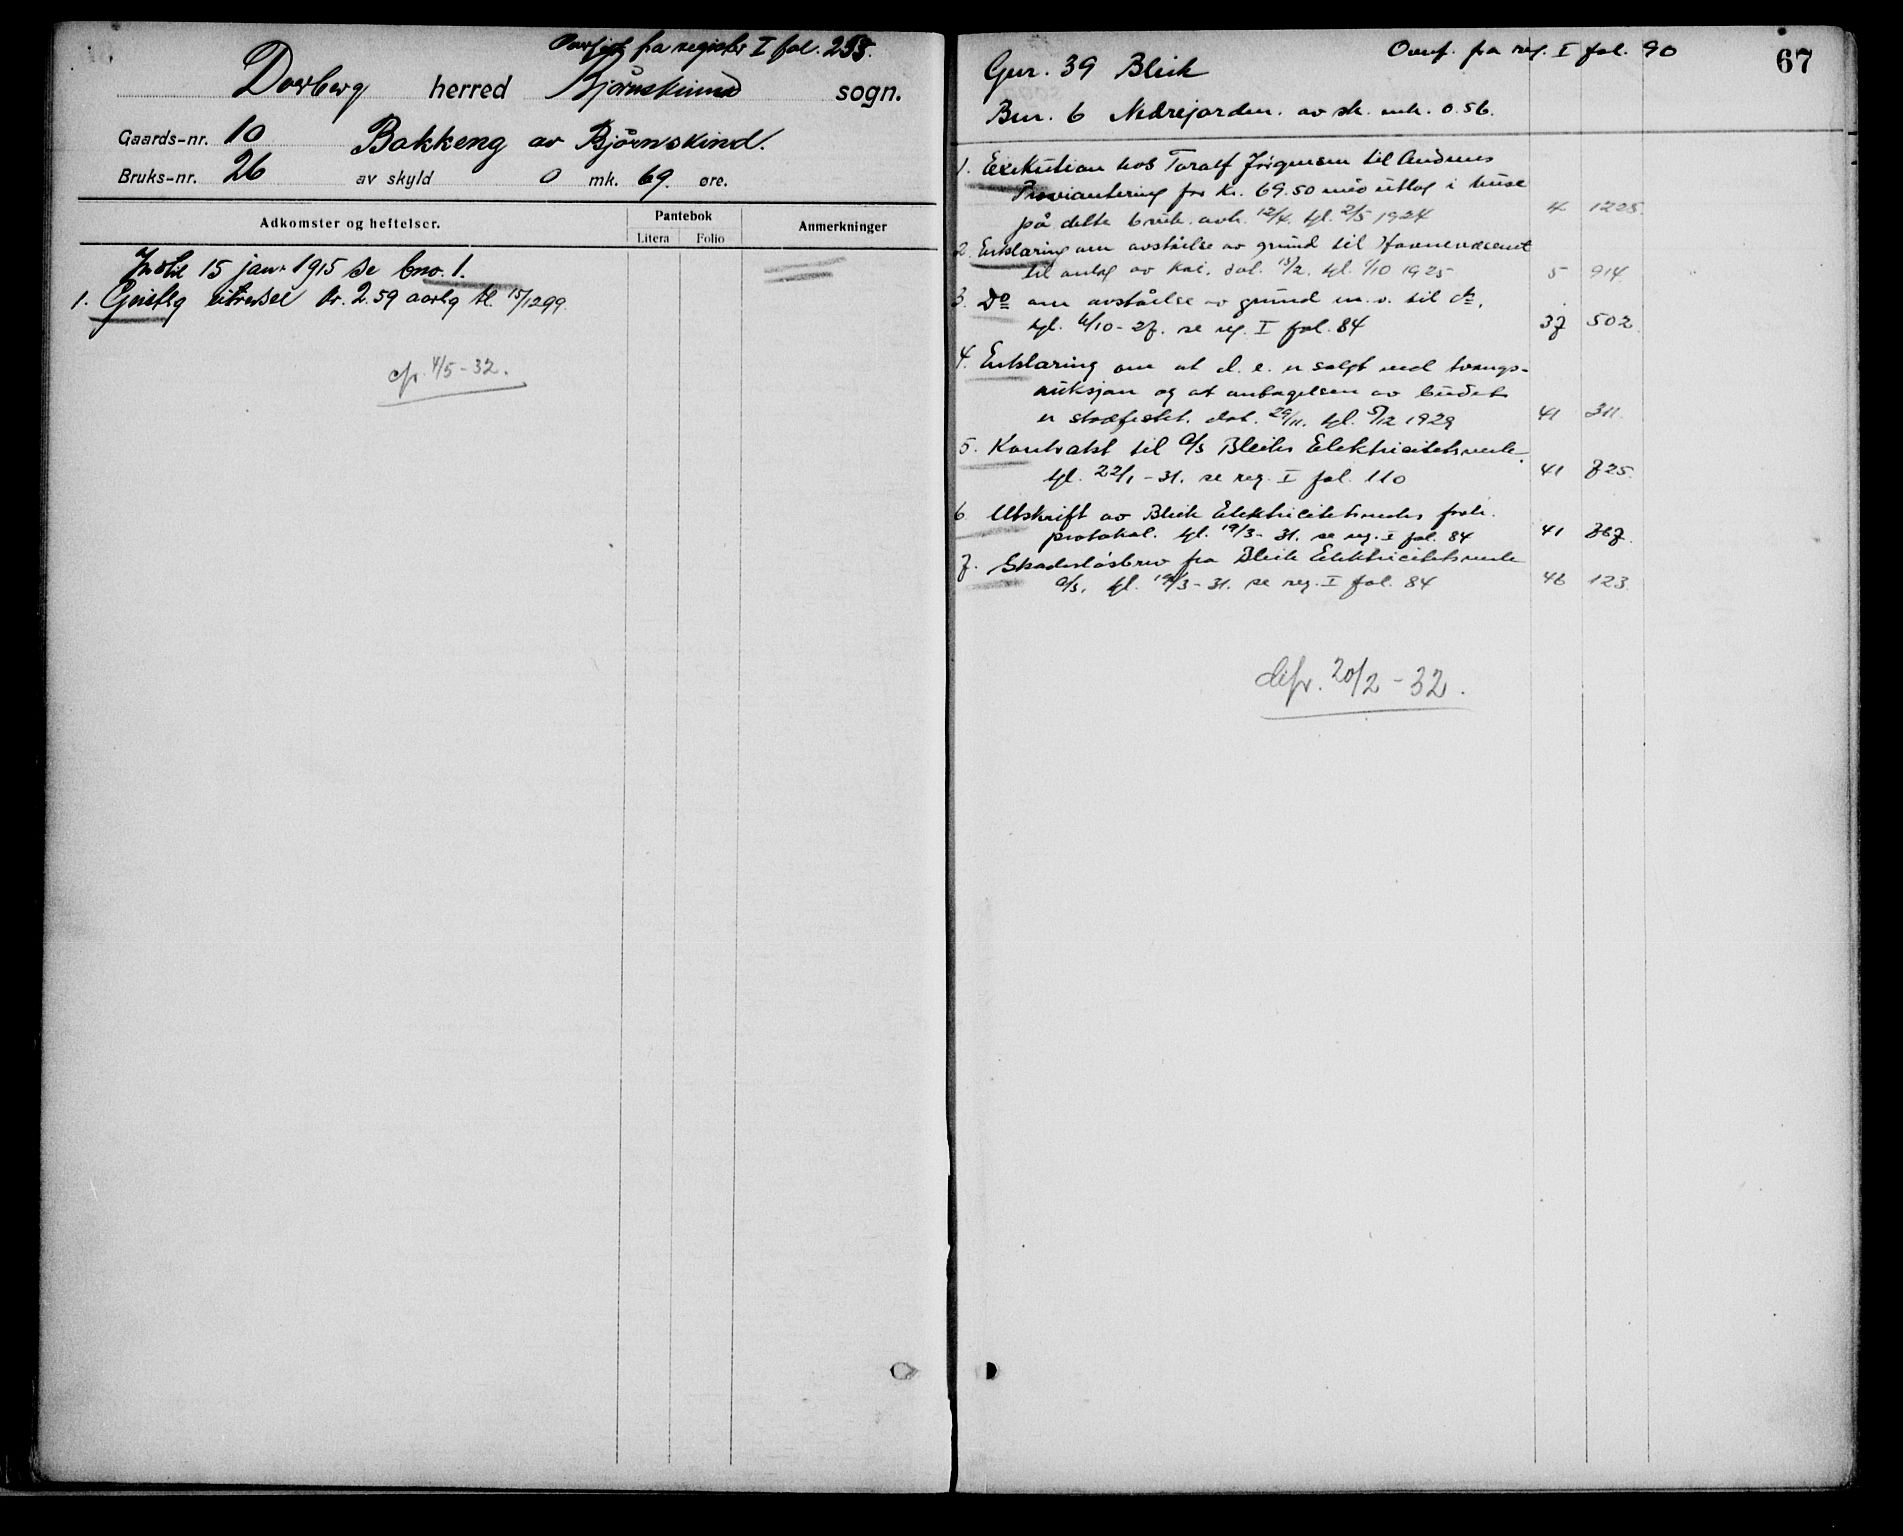 Overført fra register I fol. 255.
Dverberg herred Bjørnskinn sogn.
Gaards-nr. 10 Bakkeng av Bjørnskind.
Bruks-nr. 26 av skyld 0 mk. 69. øre.
Adkomster og heftelser. Pantebok Anmerkninger
Litera Folio
Indtil 15 jan. 1915 se bno. 1.
1. Geistlig utredsel kr. 2.59 aarlig tl. 15/12 99.
cfr. 4/5-32.
Overf. fra reg. I fol. 90
67
Gnr. 39 Bleik
Bnr. 6 Nedrejorden. av sk. mk. 0.56.
1. Exekution hos Toralf Jørgensen til Andenes
Proviantering for kr. 69.50 med utlæg i huse
på dette bruk. avh. 12/4. tgl. 2/5 1924 4 1225.
2. Erklæring om avståelse av grund til Havnevæsenet
til anlæg av kai. dat. 13/2. tgl. 1/10 1925 5 914.
3. Do om avståelse av grund m.v. til do.
tgl. 6/10-27. se reg. I fol. 84 37 502.
4. Erklæring om at d. e. er solgt ved tvangs-
auksjon og at antagelsen av budet
er stadfestet. dat. 29/11. tgl. 5/12 1929 41 311.
5. Kontrakt til A/S Bleiks Elektricitetsverk.
tgl. 22/1-31. se reg. I fol. 110 41 725.
6. Utskrift av Bleik Elektricitetsverks forh.
protokol. tgl. 19/3-31. se reg. I fol. 84 41 767.
7. Skadesløsbrev fra Bleik Elektricitetsverk
A/S. tgl. 19/3-31. se reg. I fol. 84 46 123.
Cfr. 20/2-32.